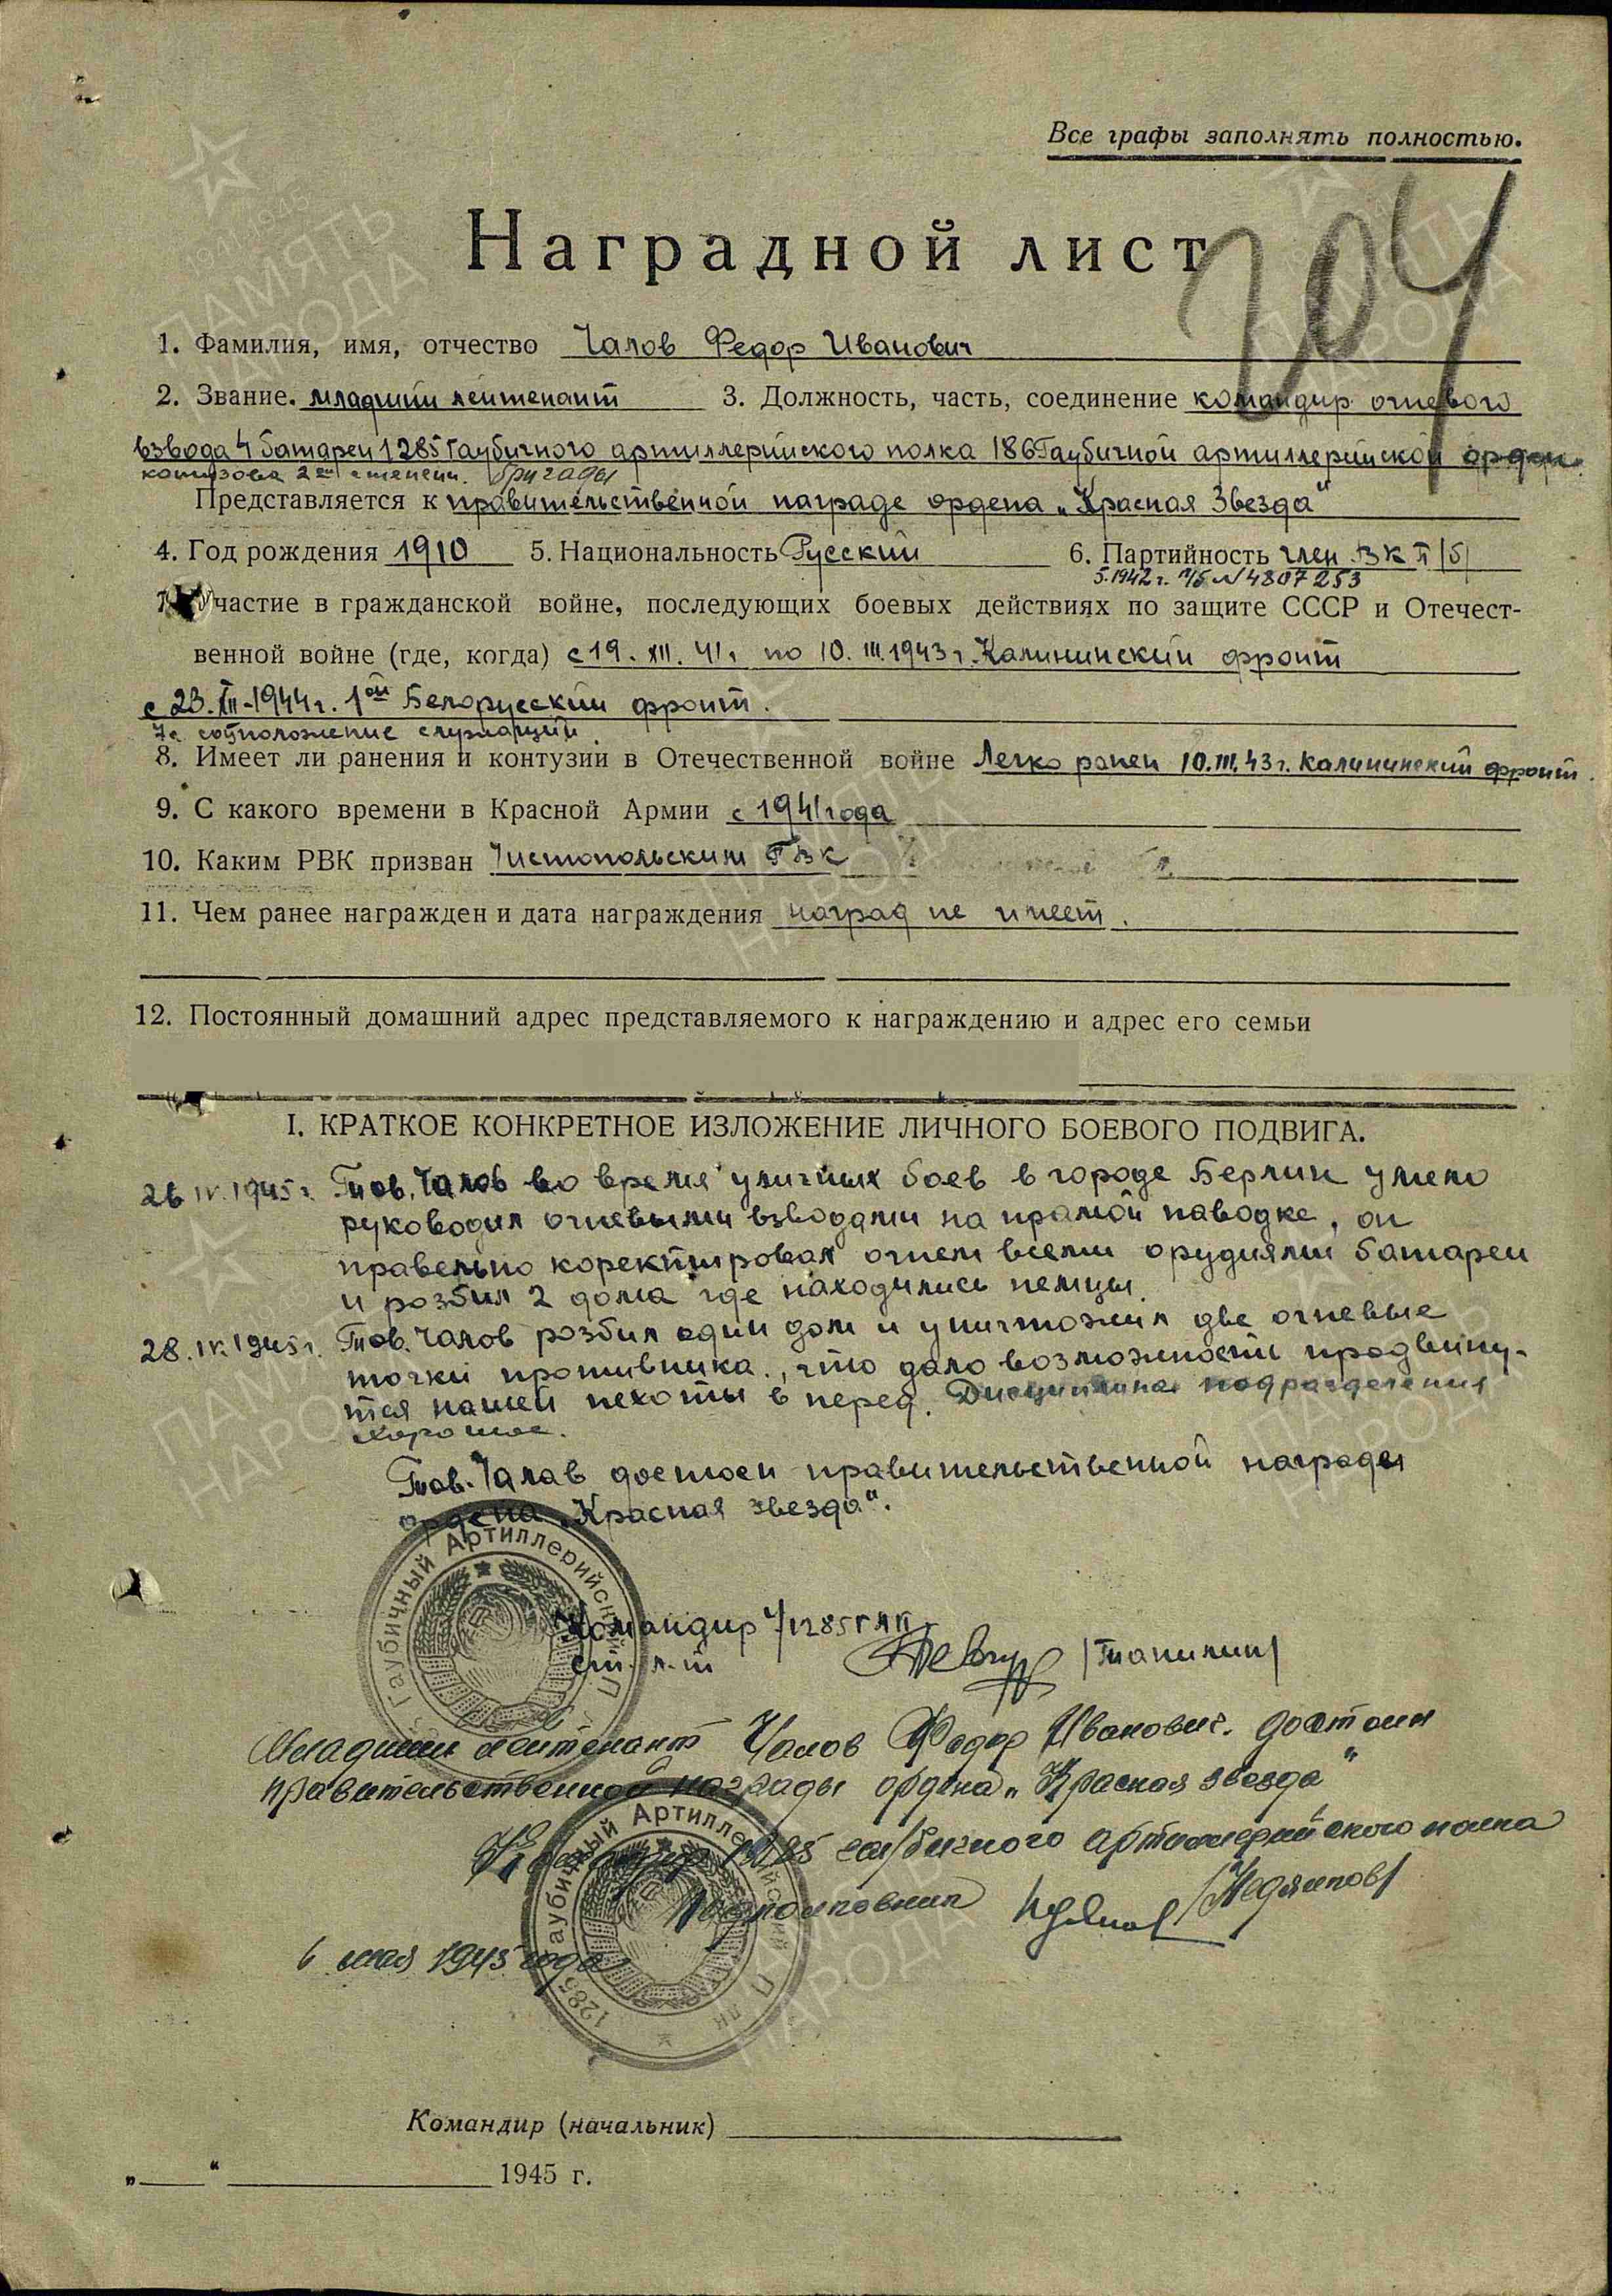 Все графы заполнять полностью.
204
Наградной лист
1. Фамилия, имя, отчество Чалов Федор Иванович
2. Звание. младший лейтенант 3. Должность, часть, соединение командир огневого
взвода 4 батареи 1285 Гаубичного артиллерийского полка 186 Гаубичной артиллерийской орден.
кутузова 2ой степени. бригады
Представляется к правительственной награде ордена „Красная Звезда“
4. Год рождения 1910 5. Национальность Русский 6. Партийность член ВКП/б/
5.1942 г. п/б № 4807253
7. Участие в гражданской войне, последующих боевых действиях по защите СССР и Отечест-
венной войне (где, когда) с 19. XII. 41г. по 10. III. 1943 г. Калининский фронт
с 23. XII-1944 г. 1ой Белорусский фронт.
7а соцположение служащий.
8. Имеет ли ранения и контузии в Отечественной войне Легко ранен 10.III.43 г. калининский фронт.
9. С какого времени в Красной Армии с 1941 года
10. Каким РВК призван Чистопольским ГВК
11. Чем ранее награжден и дата награждения наград не имеет.
12. Постоянный домашний адрес представляемого к награждению и адрес его семьи
I. КРАТКОЕ КОНКРЕТНОЕ ИЗЛОЖЕНИЕ ЛИЧНОГО БОЕВОГО ПОДВИГА.
26 IV. 1945 г. Тов. Чалов во время уличных боев в городе Берлин умело
руководил огневыми взводами на прямой наводке, он
правельно коректировал огнем всеми орудиями батареи
и розбил 2 дома где находились немцы.
28. IV. 1945 г. Тов. Чалов розбил один дом и уничтожил две огневые
точки противника, что дало возможность продвину-
тся нашей пехоты в перед. Дисциплина подразделения
хорошая.
Тов. Чалав достоен правительственной награды
ордена „Красная звезда“.
Гаубичный Артиллерийский П
Командир 4/1285 ГАП
ст. л-т /Танилин/
Младший лейтенант Чалов Федор Иванович. достоин
правительственной награды ордена „Красная звезда“
Командир 1285 гаубичного артиллерийского полка
Подполковник /Недялков/
6 мая 1945 года
1285 Гаубичный Артиллерийский П лк
Командир (начальник)
„ “ 1945 г.
ПАМЯТЬ
НАРОДА